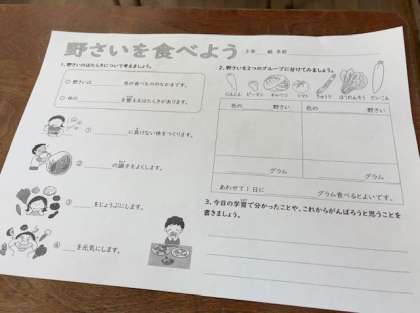 野さいを食べよう
年 組 名前
1. 野さいのはたらきについて考えましょう。
○ 野さいは 色の食べもののなかまです。
○ 体の を整えるはたらきがあります。
① に負けない体をつくります。
② の調子をよくします。
③ をじょうぶにします。
④ を元気にします。
2. 野さいを2つのグループに分けてみましょう。
にんじん ピーマン キャベツ トマト きゅうり ほうれんそう だいこん
色の 野さい 色の 野さい
グラム グラム
あわせて1日に グラム食べるとよいです。
3. 今日の学習で分かったことや、これからがんばろうと思うことを
書きましょう。